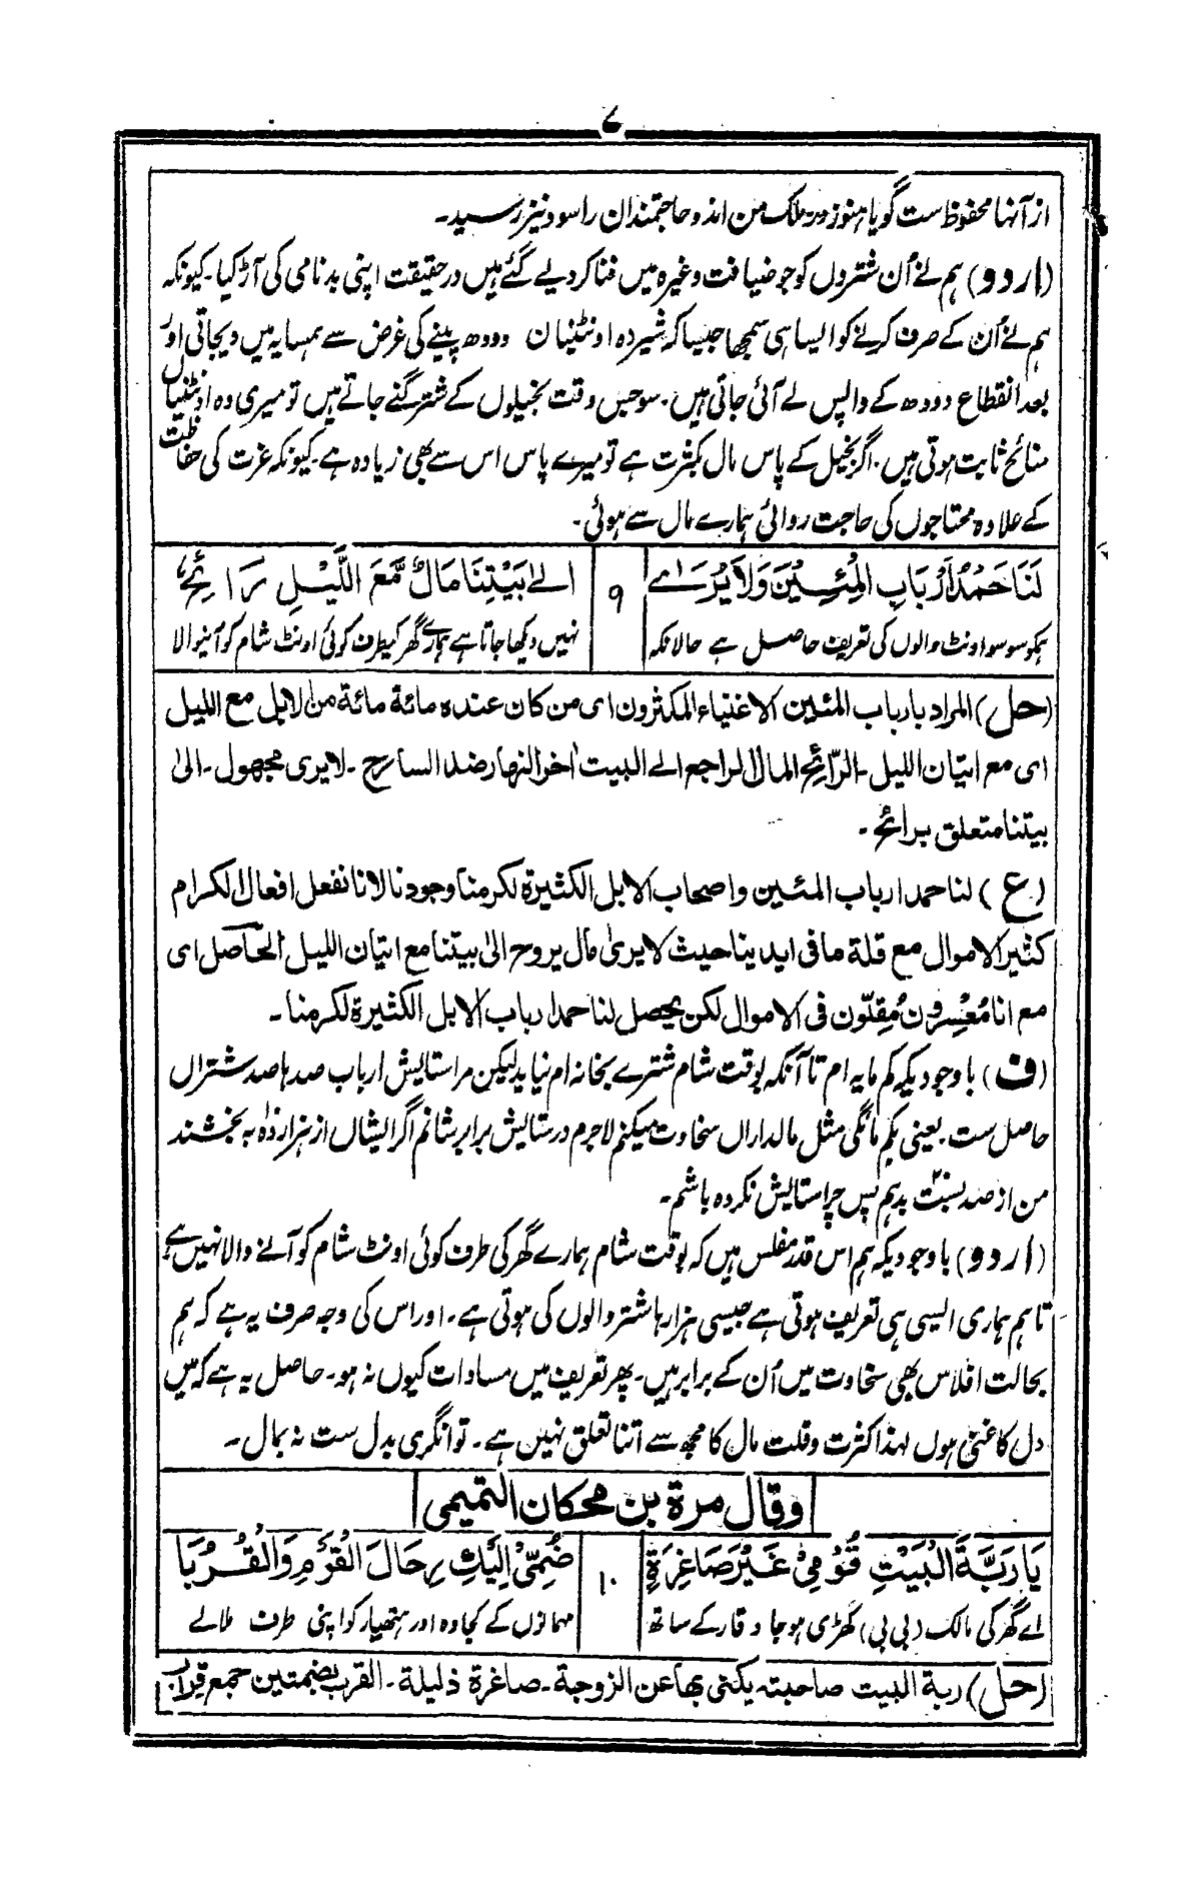 ۷
از آنہا محفوظ ست گویا ہنوز در ملک من اند و حاجتمندان را سود نیز رسید۔
(اردو) ہم نے اُن شتروں کو جو ضیافت وغیرہ میں فنا کر دیے گئے ہیں در حقیقت اپنی بدنامی کی آڑ کیا۔ کیونکہ
ہم نے اُن کے صرف کرنے کو ایسا ہی سمجھا جیسا کہ شیردہ اونٹنیان دودھ پینے کی غرض سے ہمسایہ میں دیجاتی اور
بعد انقطاع دودھ کے واپس لے آئی جاتی ہیں۔ سو جس وقت بخیلوں کے شتر گنے جاتے ہیں تو میری وہ اونٹنیاں
منائح ثابت ہوتی ہیں۔ اگر بخیل کے پاس مال بکثرت ہے تو میرے پاس اس سے بھی زیادہ ہے۔ کیونکہ عزت کی حفاظت
کے علاوہ محتاجوں کی حاجت روائی ہمارے مال سے ہوئی۔
لَنَا حَمْدُ اَرْبَابِ الْمِئِيْنَ وَلَا يُرٰے ۹ اِلٰے بَيْتِنَا مَالٌ مَّعَ اللَّيْلِ رَائِحُ
ہمکو سو سو اونٹ والوں کی تعریف حاصل ہے حالانکہ نہیں دیکھا جاتا ہے ہمارے گھر کیطرف کوئی اونٹ شام کو آنیوالا
(حل) المراد بارباب المئین الاغنیاء المکثرون ای من کان عندہ مائة مائة من الابل مع اللیل
ای مع اتیان اللیل۔ الرّائح المال الراجع الے البیت اخر النہار ضد السارح ۔ لا یری مجہول۔ الیٰ
بیتنا متعلق برائح۔
(ع) لنا حمد ارباب المئین واصحاب الابل الکثیرة لکرمنا وجودنا لانا نفعل افعال الکرام
کثیر الاموال مع قلة ما فی ایدینا حیث لا یریٰ مال یروح الیٰ بیتنا مع اتیان اللیل الحاصل ای
مع انا مُعْسِرون مُقِلّون فی الاموال لکن یحصل لنا حمد ارباب الابل الکثیرة لکرمنا۔
(ف) با وجودیکہ کم مایہ ام تا آنکہ بوقت شام شترے بخانہ ام نیاید لیکن مرا ستایش ارباب صدہا صد شتراں
حاصل ست۔ یعنی بکم مانگی مثل مالداراں سخاوت میکنم لاجرم در ستایش برابر شانم اگر ایشاں از ہزار دہ بہ بخشند
من از صد بست بدہم پس چرا ستایش نکردہ باشم۔
(اردو) با وجودیکہ ہم اس قدر مفلس ہیں کہ بوقت شام ہمارے گھر کی طرف کوئی اونٹ شام کو آنے والا نہیں ہے
تاہم ہماری ایسی ہی تعریف ہوتی ہے جیسی ہزارہا شتر والوں کی ہوتی ہے۔ اور اس کی وجہ صرف یہ ہے کہ ہم
بحالت افلاس بھی سخاوت میں اُن کے برابر ہیں۔ پھر تعریف میں مساوات کیوں نہ ہو۔ حاصل یہ ہے کہ میں
دل کا غنی ہوں لہذا کثرت وقلت مال کا مجھ سے اتنا تعلق نہیں ہے۔ توانگری بدل ست نہ بمال۔
وقال مرة بن محکان التمیمی
يَا رَبَّةَ الْبَيْتِ قُوْمِيْ غَيْرَ صَاغِرَةٍ ۱۰ ضُمِّيْ اِلَيْكِ رِحَالَ الْقَوْمِ وَالْقُرُبَا
اے گھر کی مالک (بی بی) کھڑی ہو جا وقار کے ساتھ مہمانوں کے کجاوہ اور ہتھیار کو اپنی طرف ملالے
(حل) ربة البیت صاحبتہ یکنی بھا عن الزوجة۔ صاغرة ذلیلة۔ القرب بضمتین جمع قراب